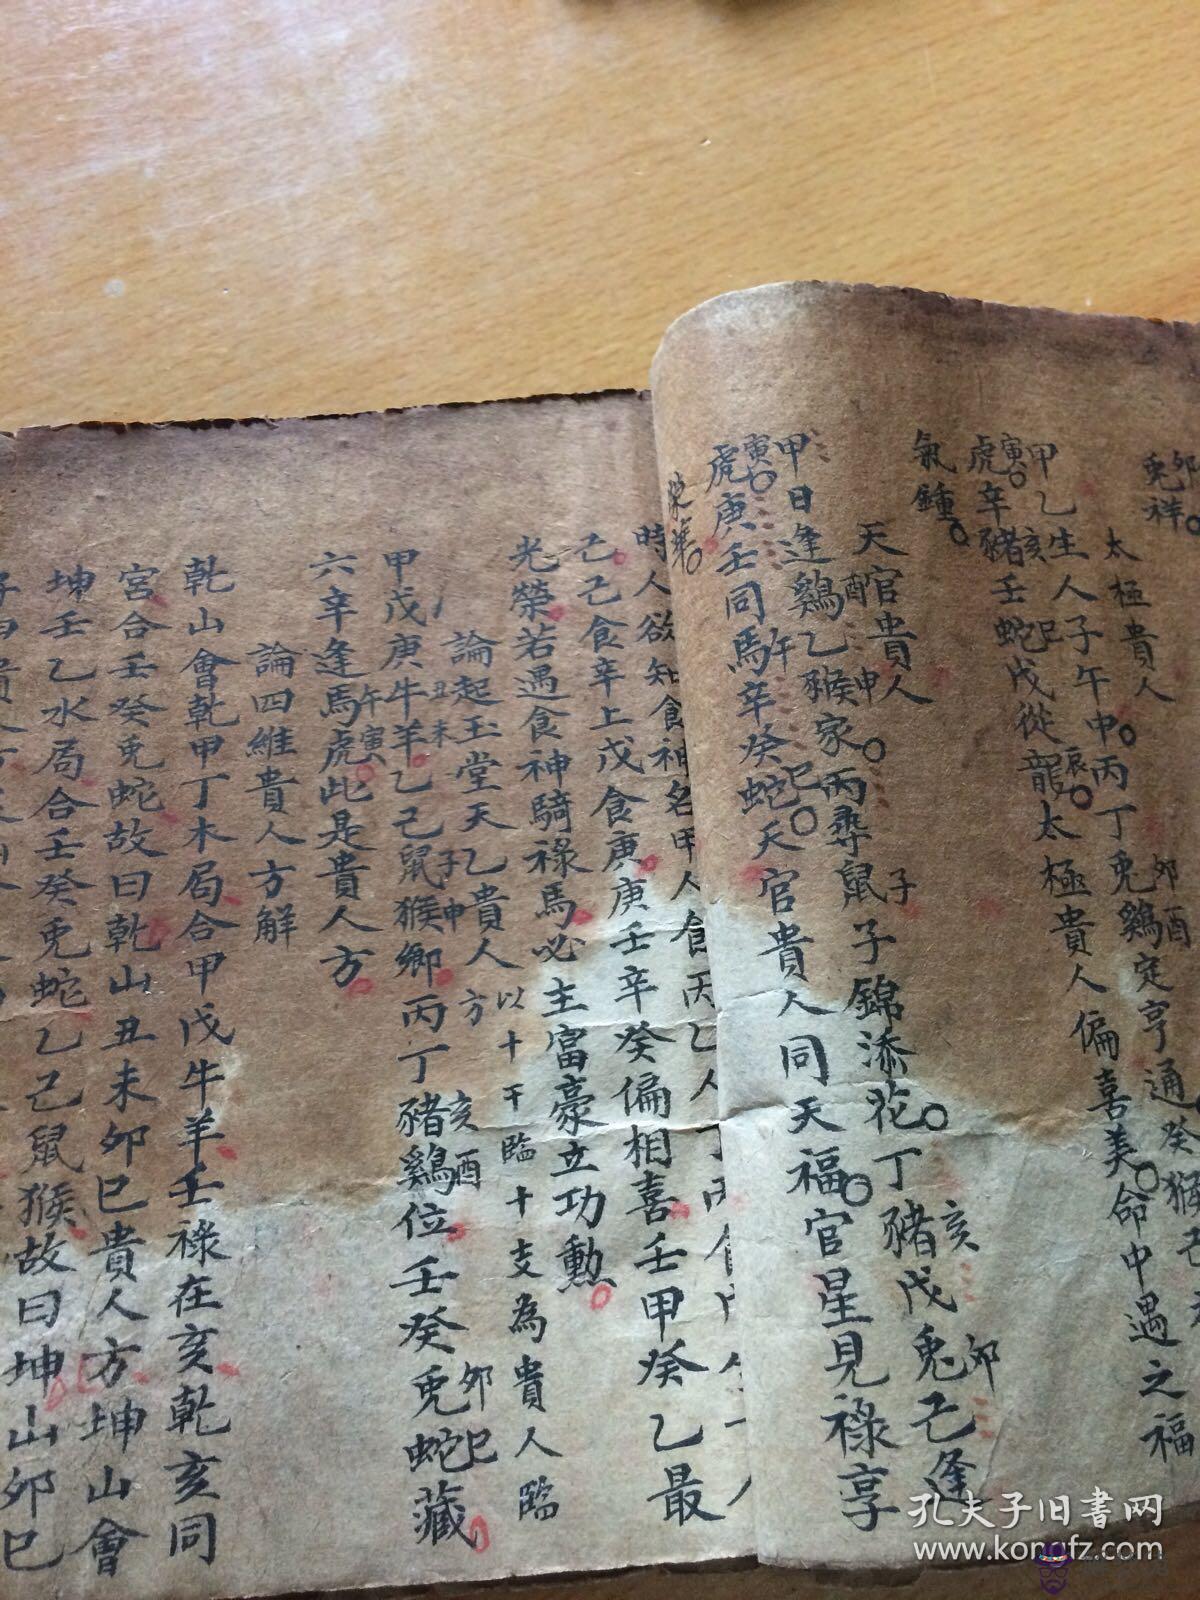 卯
兔祥
太極貴人
甲乙生人子午中丙丁兔鷄定亨通癸猴
卯酉
寅亥巳辰
虎辛豬壬蛇戊從龍太極貴人偏喜美命中遇之福
氣鍾
天官貴人
酉申子亥卯
甲日逢鷄乙猴家丙尋鼠子錦添花丁豬戊兔己逢
寅午巳
虎庚壬同馬辛癸蛇天官貴人同天福官星見祿享
榮華
時人欲知食神名甲人食丙乙人
己己食辛上戊食庚庚壬辛癸偏相喜壬甲癸乙最
光榮若遇食神騎祿馬必主富豪立功勳
論起玉堂天乙貴人方以十干臨十支為貴人臨
丑未子申亥酉卯巳
甲戊庚牛羊乙己鼠猴鄉丙丁豬鷄位壬癸兔蛇藏
午寅
六辛逢馬虎此是貴人方
論四維貴人方解
乾山會乾甲丁木局合甲戊牛羊壬祿在亥乾亥同
宮合壬癸兔蛇故曰乾山丑未卯巳貴人方坤山會
坤壬乙水局合壬癸兔蛇乙己鼠猴故曰坤山卯巳
子申貴人方
孔夫子旧书网
www.kongfz.com